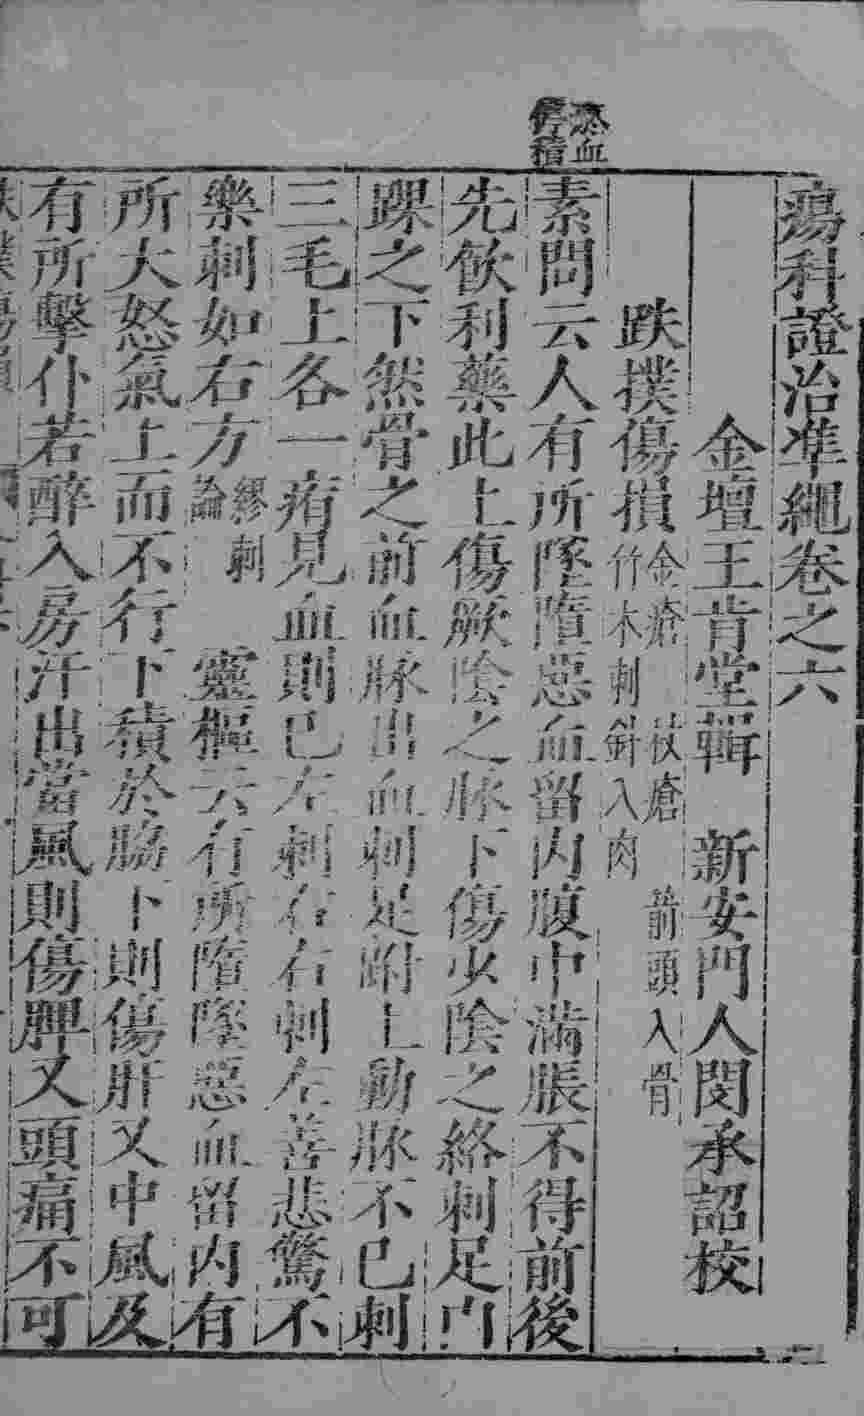 惡血
瘀積
瘍科證治準繩卷之六
金壇王肯堂輯　新安門人閔承詔校
跌撲傷損 金瘡　杖瘡　箭頭入骨
竹木刺針入肉
素問云人有所墜墮惡血留內腹中滿脹不得前後
先飲利藥此上傷厥陰之脉下傷少陰之絡刺足內
踝之下然骨之前血脉出血刺足跗上動脉不已刺
三毛上各一痏見血則已左刺右右刺左善悲驚不
樂刺如右方 繆刺
論　靈樞云有所墮墜惡血留內有
所大怒氣上而不行下積於脇下則傷肝又中風及
有所擊仆若醉入房汗出當風則傷脾又頭痛不可